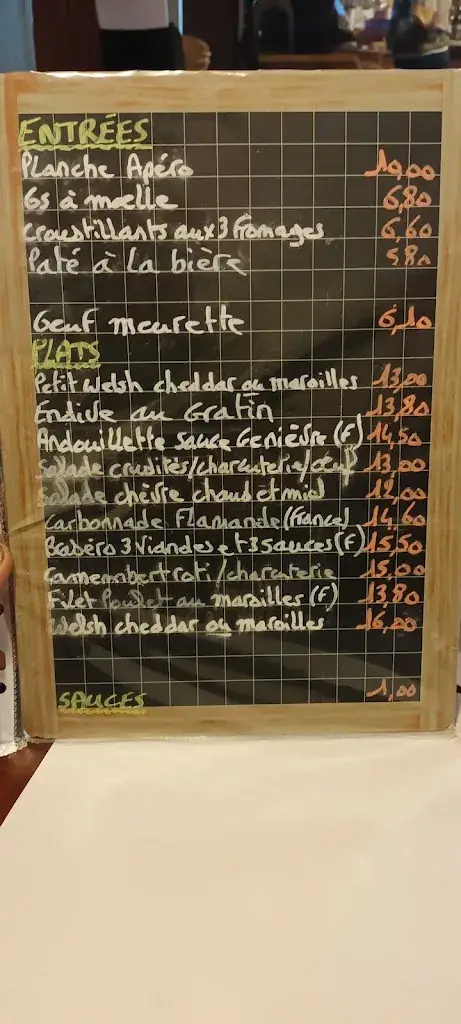 ENTRÉES
Planche Apéro 10,00
Os à moelle 6,80
croustillants aux 3 fromages 6,60
Paté à la bière 5,80
Oeuf meurette 6,10
PLATS
Petit welsh cheddar ou maroilles 13,00
Endive au Gratin 13,80
Andouillette sauce Genièvre (F) 14,50
Salade crudités/charcuterie/oeuf 13,00
Salade chèvre chaud et miel 12,00
Carbonnade Flamande (France) 14,60
3 Viandes et 3 sauces (F) 15,50
Camembert roti/charcuterie 15,00
Filet Poulet au maroilles (F) 13,80
Welsh cheddar ou maroilles 16,00
SAUCES 1,00